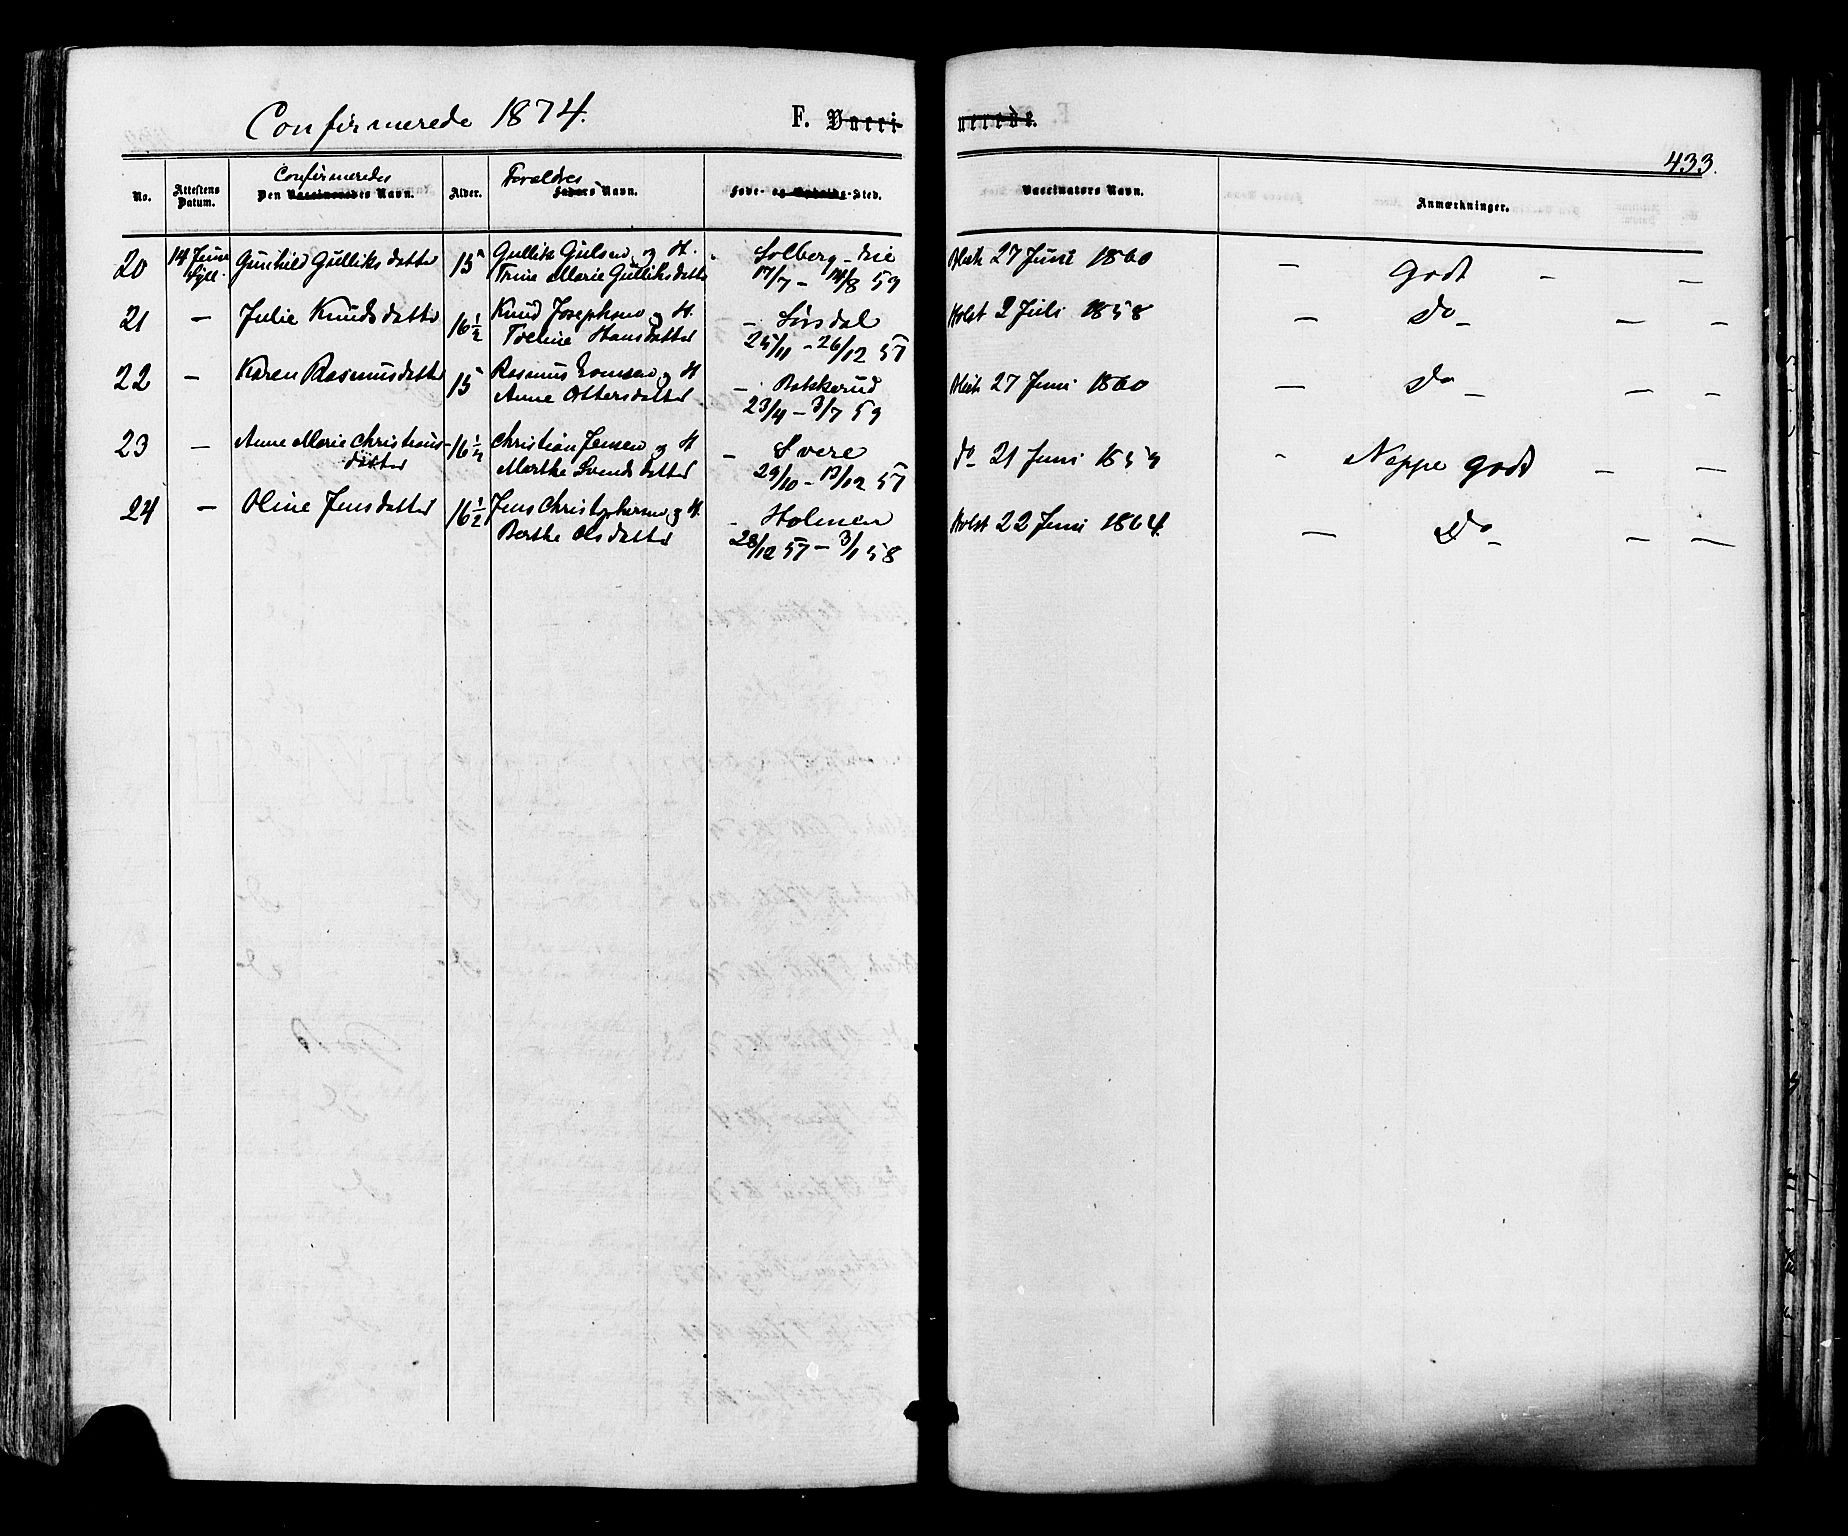 Confirmerede 1874. F. Vacci-
nerede.
433.
No. Attestens Datum. Den Vaccineredes Navn. Confirmeredes Alder. Faders Navn. Forældres Føde- og Opholds-Sted. Vaccinators Navn. Anmærkninger.
20 14 Juni Gunhild Gulliksdatter 15 Gullik Gulsen og H. Solberg-eie Blich 27 Juni 1860 — Godt — —
Trine Marie Gulliksdatter 17/7 — /8 59
21 — Julie Knudsdatter 16 1/2 Knud Josephsen og H. — Sørsdal Holst 2 Juli 1858 — Do — — —
Toline Hansdatter 25/11 — 26/12 57
22 — Karen Rasmusdatter 15 Rasmus og H — Bakkerud Blich 27 Juni 1860 — Do — — —
Anne Ottersdatter 23/4 — 3/7 59
23 — Anne Marie Christians- 16 1/4 Christian Jensen og H — Svere do 21 Juni 1859 — Neppe godt — —
datter Marthe Svendsdatter 29/10 — 13/12 57
24 — Oline Jensdatter 16 1/2 Jens Christophersen og H. — Holmen Holst 22 Juni 1864. — Do — — —
Berthe Olsdatter 28/12 57 — 3/1 58